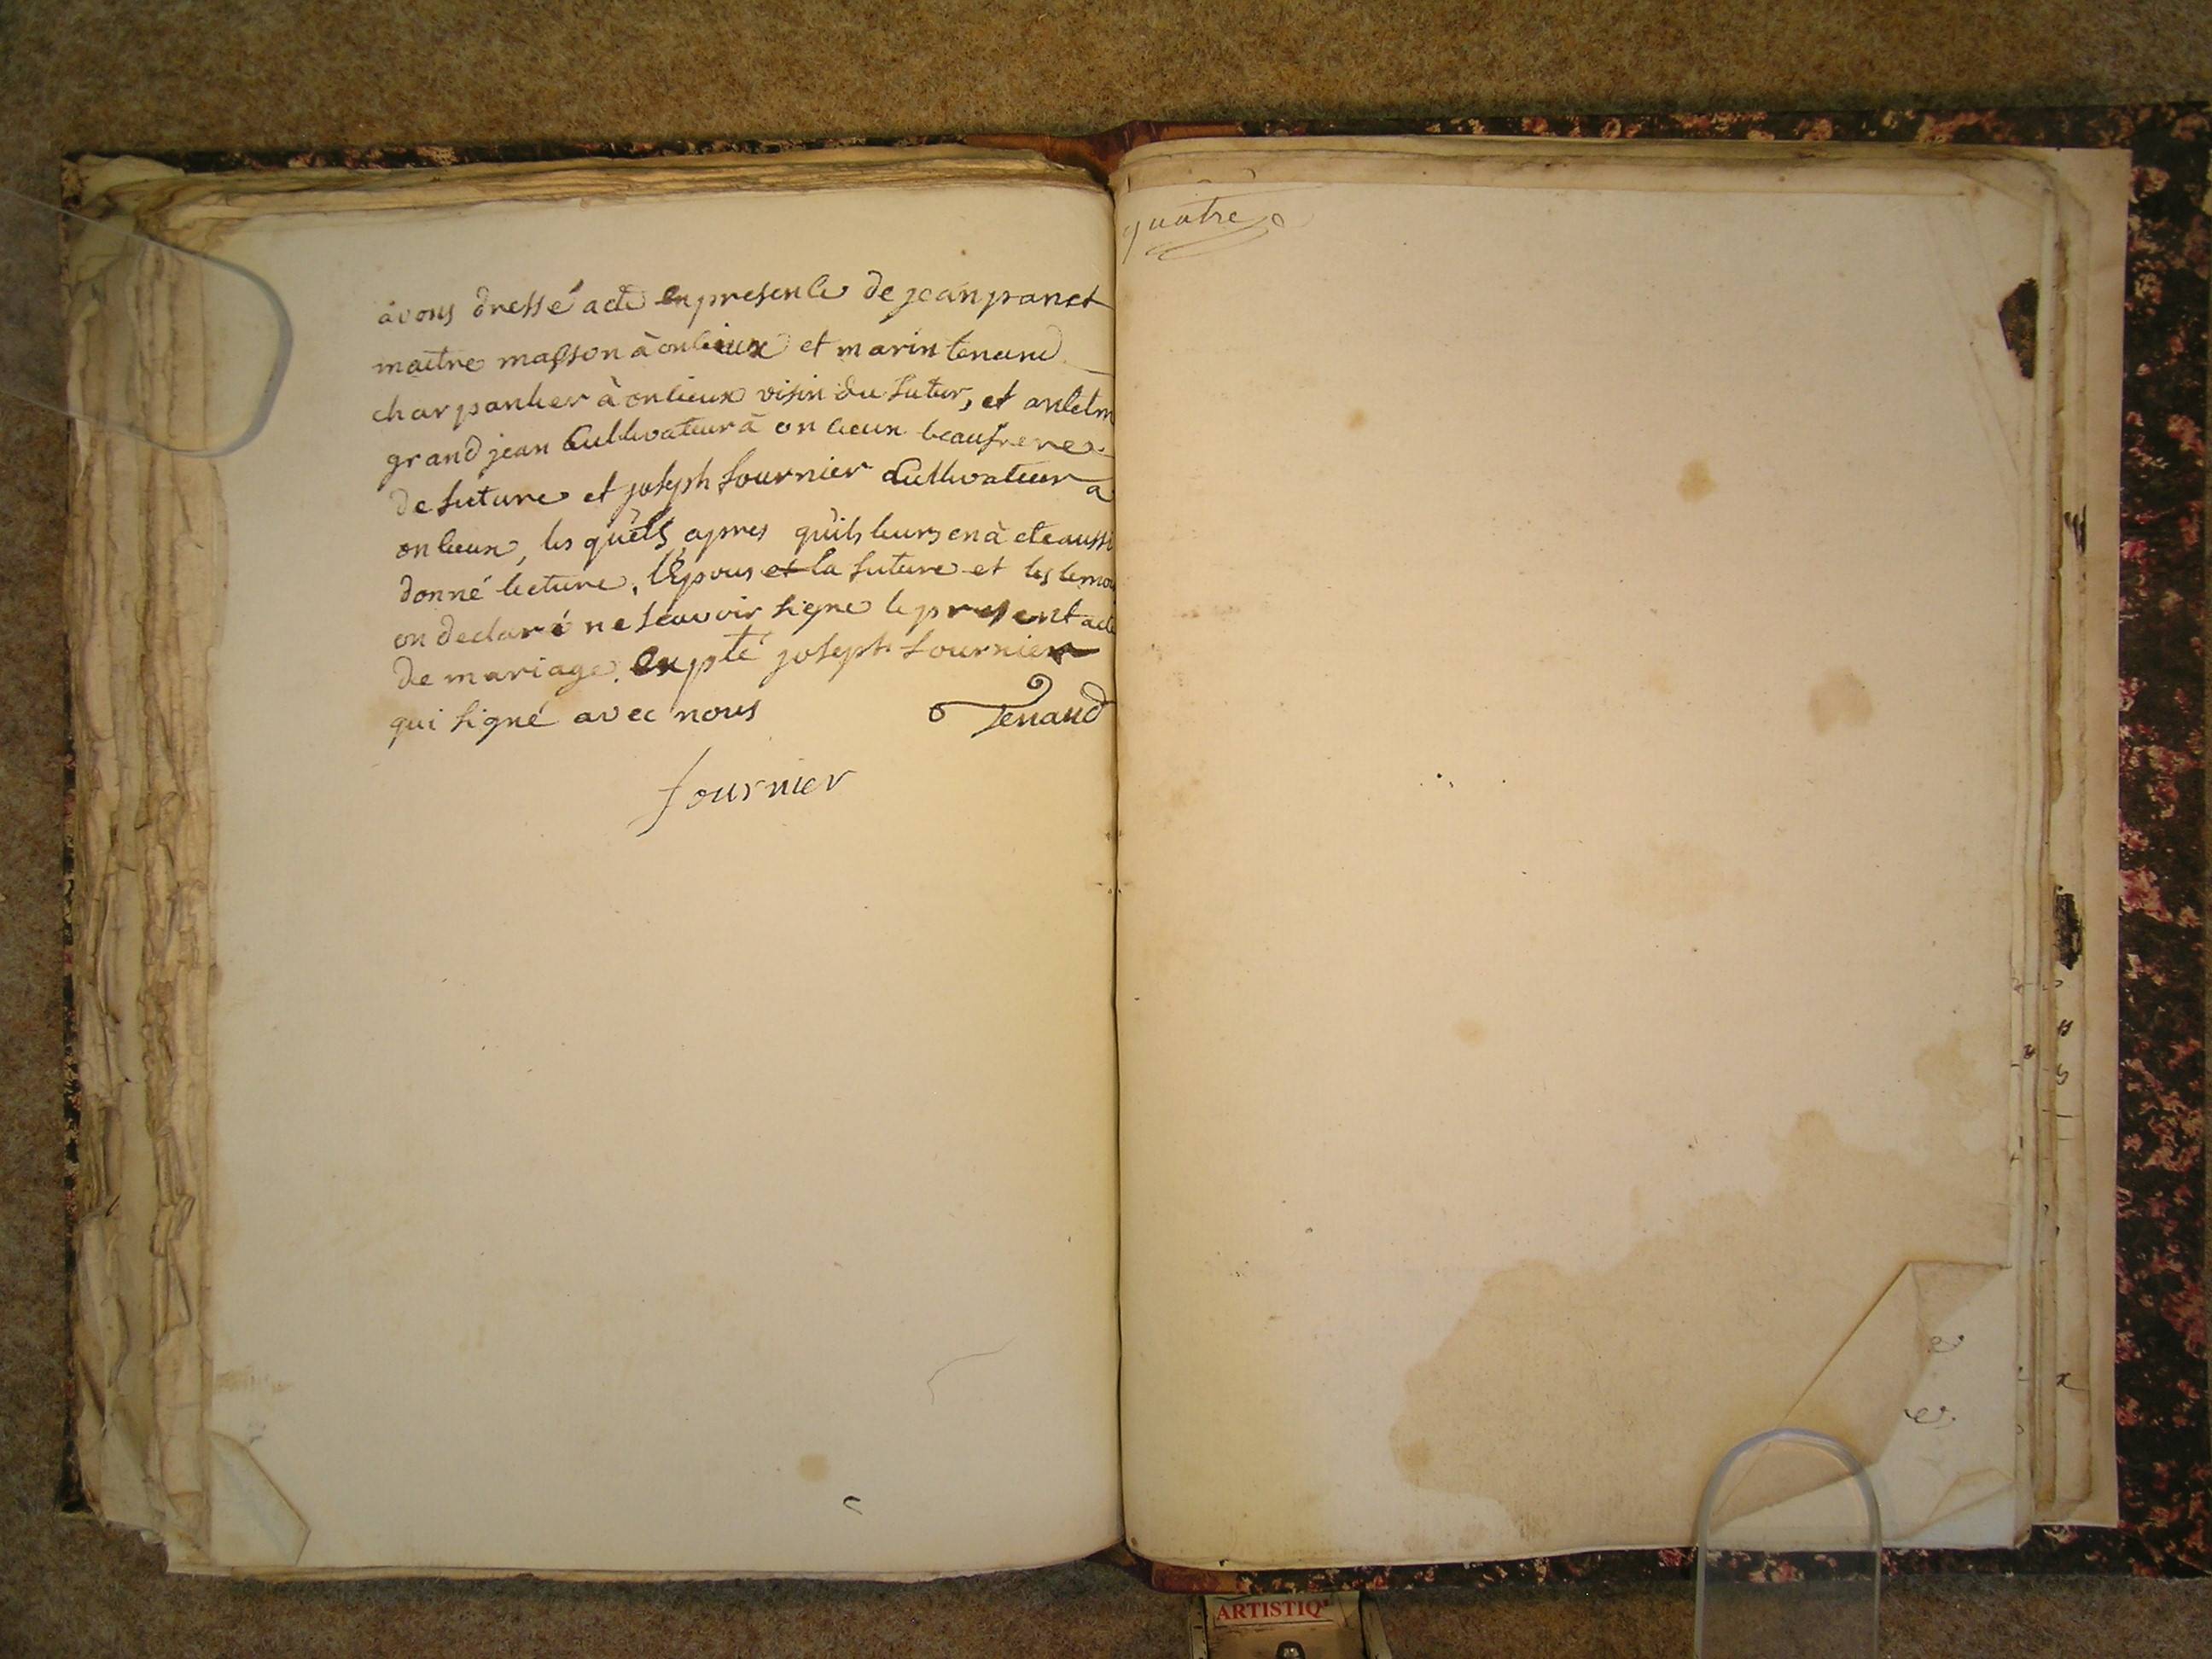 avons dressé acte en presence de jean panet
maitre masson à onlieux et marin tenand
charpantier à onlieux visin du futur, et antelm
grand jean Cultivateur à onlieux beaufrere
de future et joseph fournier Cultivateur a
onlieux, les quels apres quils leurs en à ete aussi
donné lecture, l'Epous et la future et les temoi
on declaré ne scavoir signe le present acte
de mariage. Expté joseph fournier
qui signé avec nous Tenaud
fournier
quatre
ARTISTIQ'